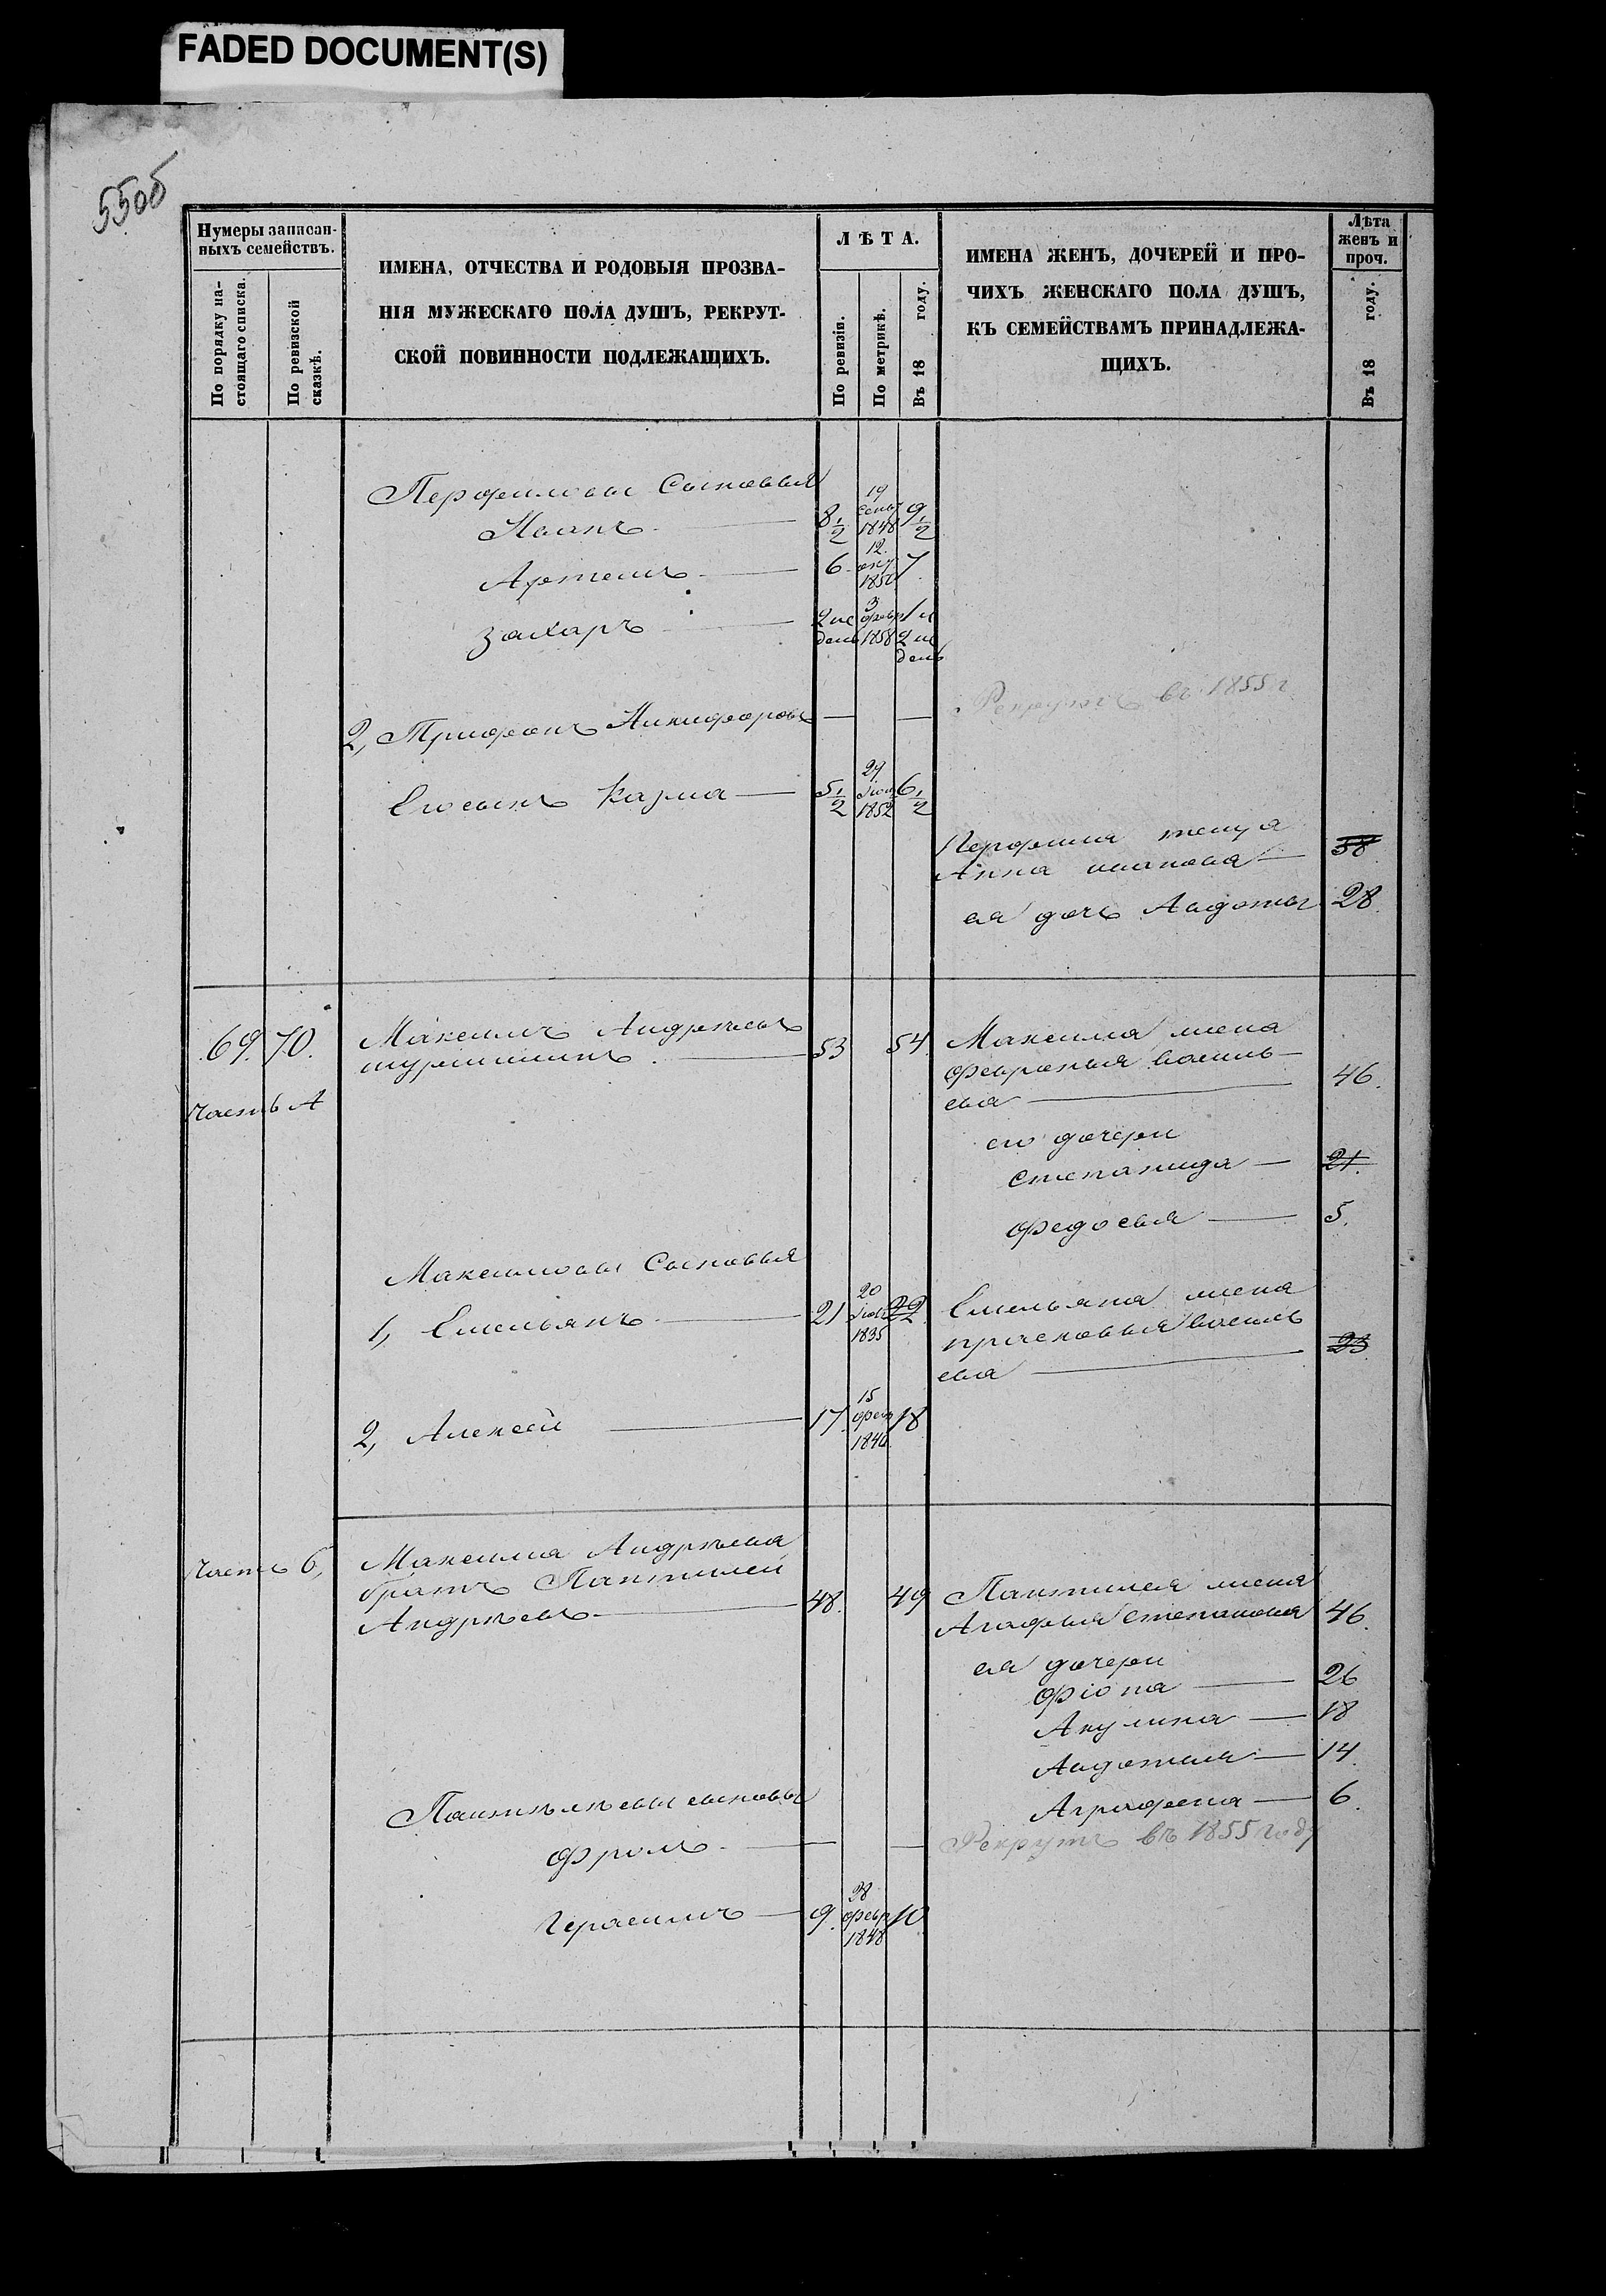 FADED DOCUMENT(S)
55об
Нумеры записан-
ныхъ семействъ.
По порядку на-
стоящаго списка.
По ревизской
сказкѣ.
ИМЕНА, ОТЧЕСТВА И РОДОВЫЯ ПРОЗВА-
НІЯ МУЖЕСКАГО ПОЛА ДУШЪ, РЕКРУТ-
СКОЙ ПОВИННОСТИ ПОДЛЕЖАЩИХЪ.
ЛѢТА.
По ревизіи.
По метрикѣ.
Въ 18 году.
ИМЕНА ЖЕНЪ, ДОЧЕРЕЙ И ПРО-
ЧИХЪ ЖЕНСКАГО ПОЛА ДУШЪ,
КЪ СЕМЕЙСТВАМЪ ПРИНАДЛЕЖА-
ЩИХЪ.
Лѣта
женъ и
проч.
Въ 18 году.
Перфиловы Сыновья
Иванъ 8 1/2 19 Сент 1848 9 1/2
Артемъ 6 12 окт 1850 7
Захаръ 2 ме день 3 февр 1858 1 и 2 ме день
2, Трифонъ Никифоровъ — — Рекрутъ въ 1855 г
Его сынъ Казма 5 1/2 27 1852 6 1/2
Перфила теща
Анна иванова 58
ея дочь Авдотья 28
69. 70. Максимъ Андреевъ
53 54. Максима жена
Февронья василь-
ева 46.
Часть А
его дочери
Степанида 21.
Федосья 5.
Максимовы Сыновья
1, Емельянъ 21 20 1835 22 Емельяна жена
прасковья василь
ева 23
2, Алексей 17. 15 фев 1840 18
Часть б, Максима Андреева
братъ Пантилей
Андреевъ 48. 49 Пантилея жена
Агафья Степанова 46.
ея дочери
Фіона 26
Акулина 18
Авдотья 14
Аграфена 6.
Пантелеевы сыновья
Фролъ — — Рекрутъ въ 1855 году
Герасимъ 9. 28 февр 1848 10